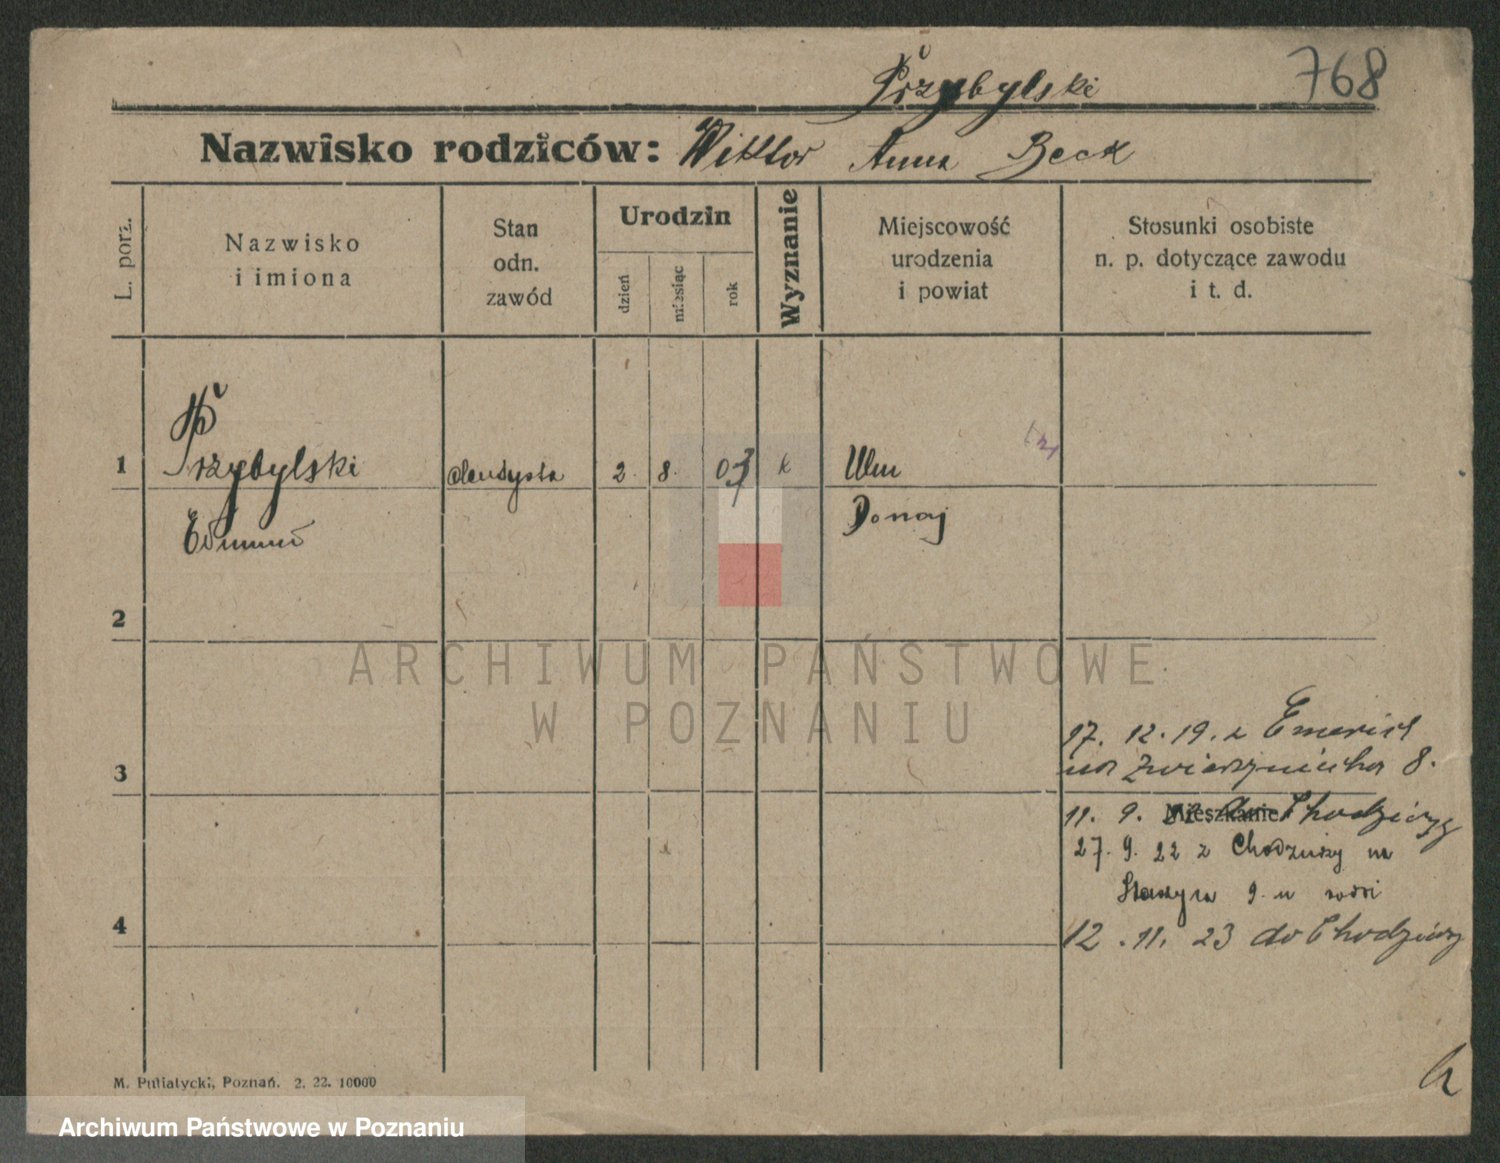 768
Przybylski
Nazwisko rodziców: Wiktor Anna Beck
L. porz.
Nazwisko
i imiona
Stan
odn.
zawód
Urodzin
dzień
miesiąc
rok
Wyznanie
Miejscowość
urodzenia
i powiat
Stosunki osobiste
n. p. dotyczące zawodu
i t. d.
1
Przybylski
dentysta
2. 8. 03
k
Ulm
Edmund
Donaj
2
ARCHIWUM PAŃSTWOWE
W POZNANIU
17. 12. 19. z
na Zwierzyniecka 8.
3
Mieszkanie
11. 9. 22 do Chodzieży
27. 9. 22 z Chodzieży na
9. u
4
12. 11. 23 do Chodzieży
M. Putiatycki, Poznań. 2. 22. 10000
Archiwum Państwowe w Poznaniu